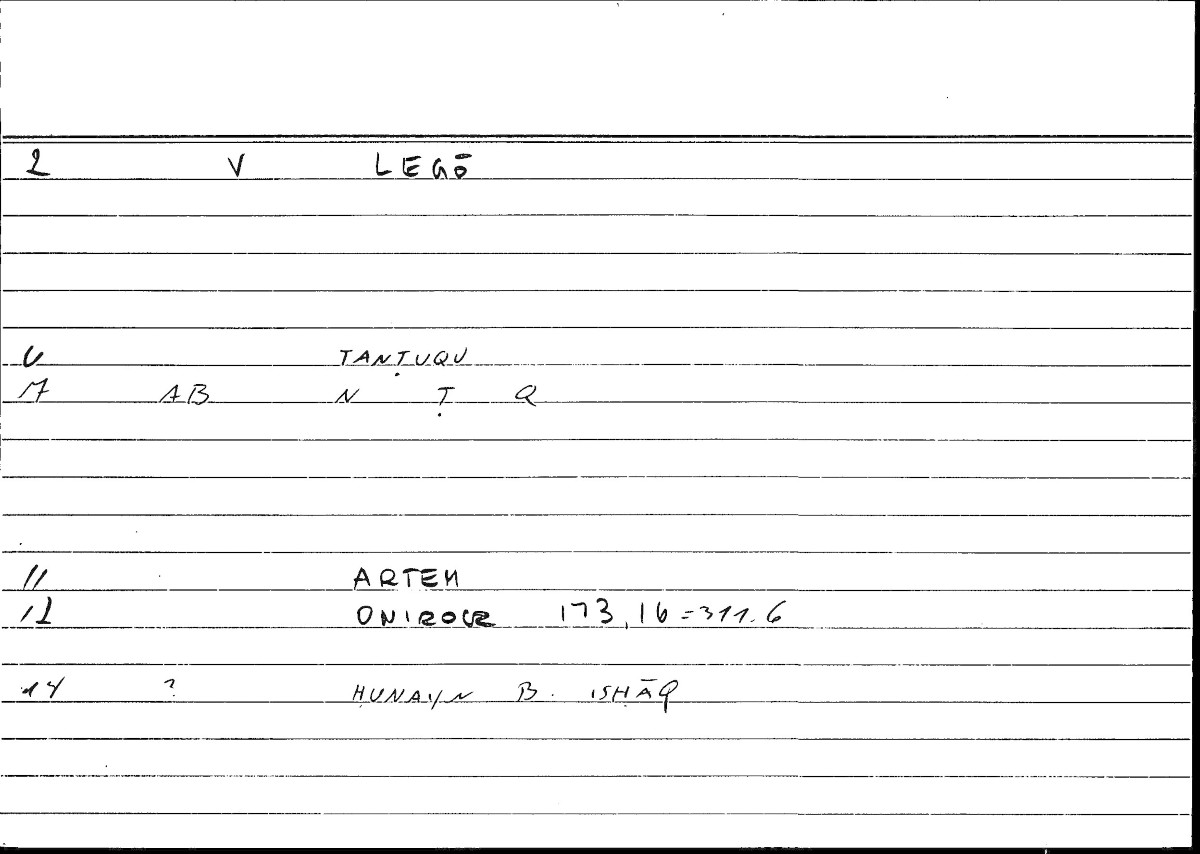 2 V LEGŌ
6 TANṬUQU
7 AB N Ṭ Q
11 ARTEM
12 ONIROCR 173,16=311.6
14 ? ḤUNAYN B. ISḤĀQ